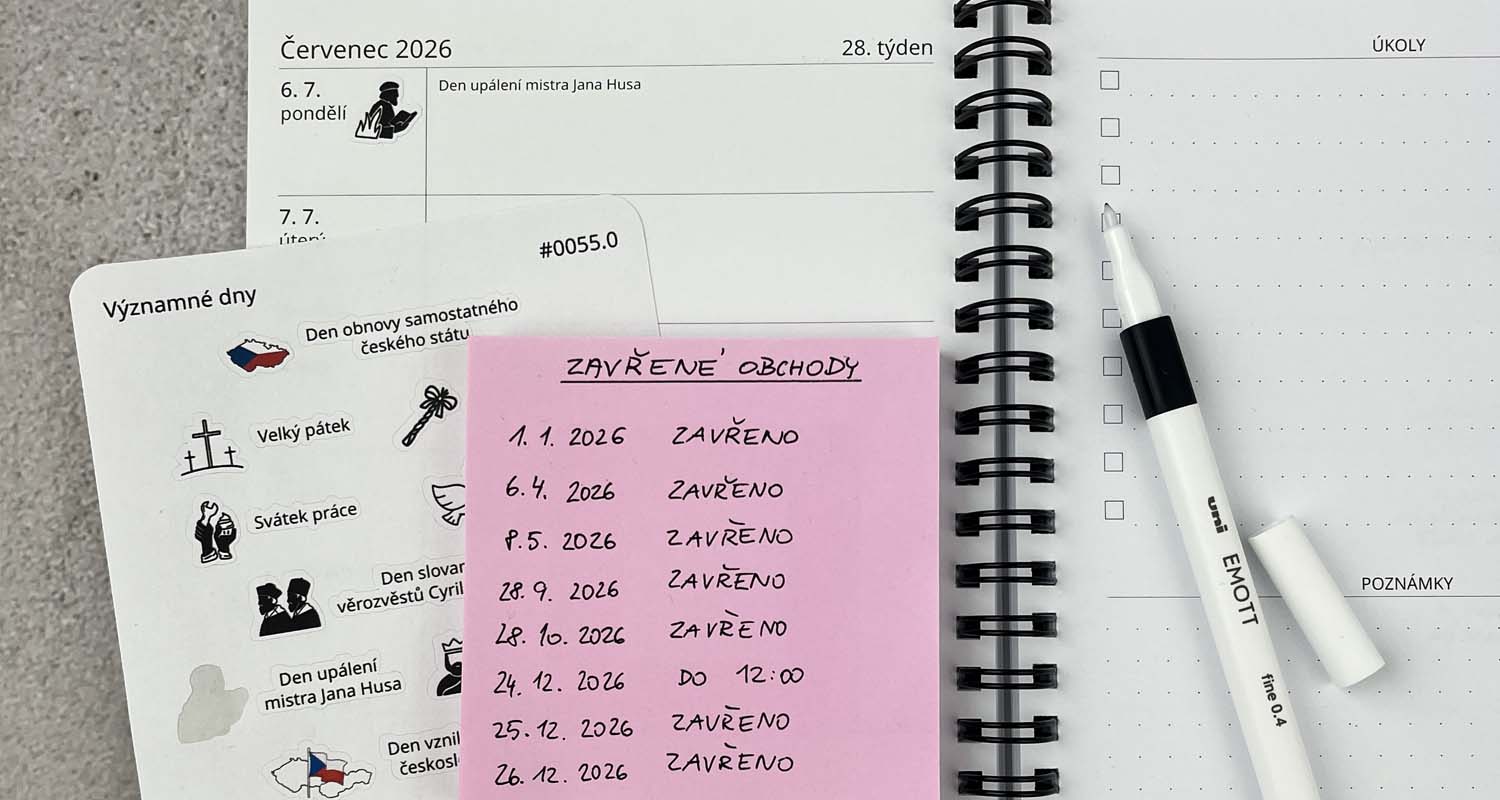 Červenec 2026
28. týden
6. 7.
pondělí
Den upálení mistra Jana Husa
7. 7.
úterý
ÚKOLY
POZNÁMKY
Významné dny
#0055.0
Den obnovy samostatného
českého státu
Velký pátek
Svátek práce
Den slovan
věrozvěstů Cyril
Den upálení
mistra Jana Husa
Den vznik
českosl
ZAVŘENÉ OBCHODY
1. 1. 2026 ZAVŘENO
6. 4. 2026 ZAVŘENO
8. 5. 2026 ZAVŘENO
28. 9. 2026 ZAVŘENO
28. 10. 2026 ZAVŘENO
24. 12. 2026 DO 12:00
25. 12. 2026 ZAVŘENO
26. 12. 2026 ZAVŘENO
uni EMOTT fine 0.4